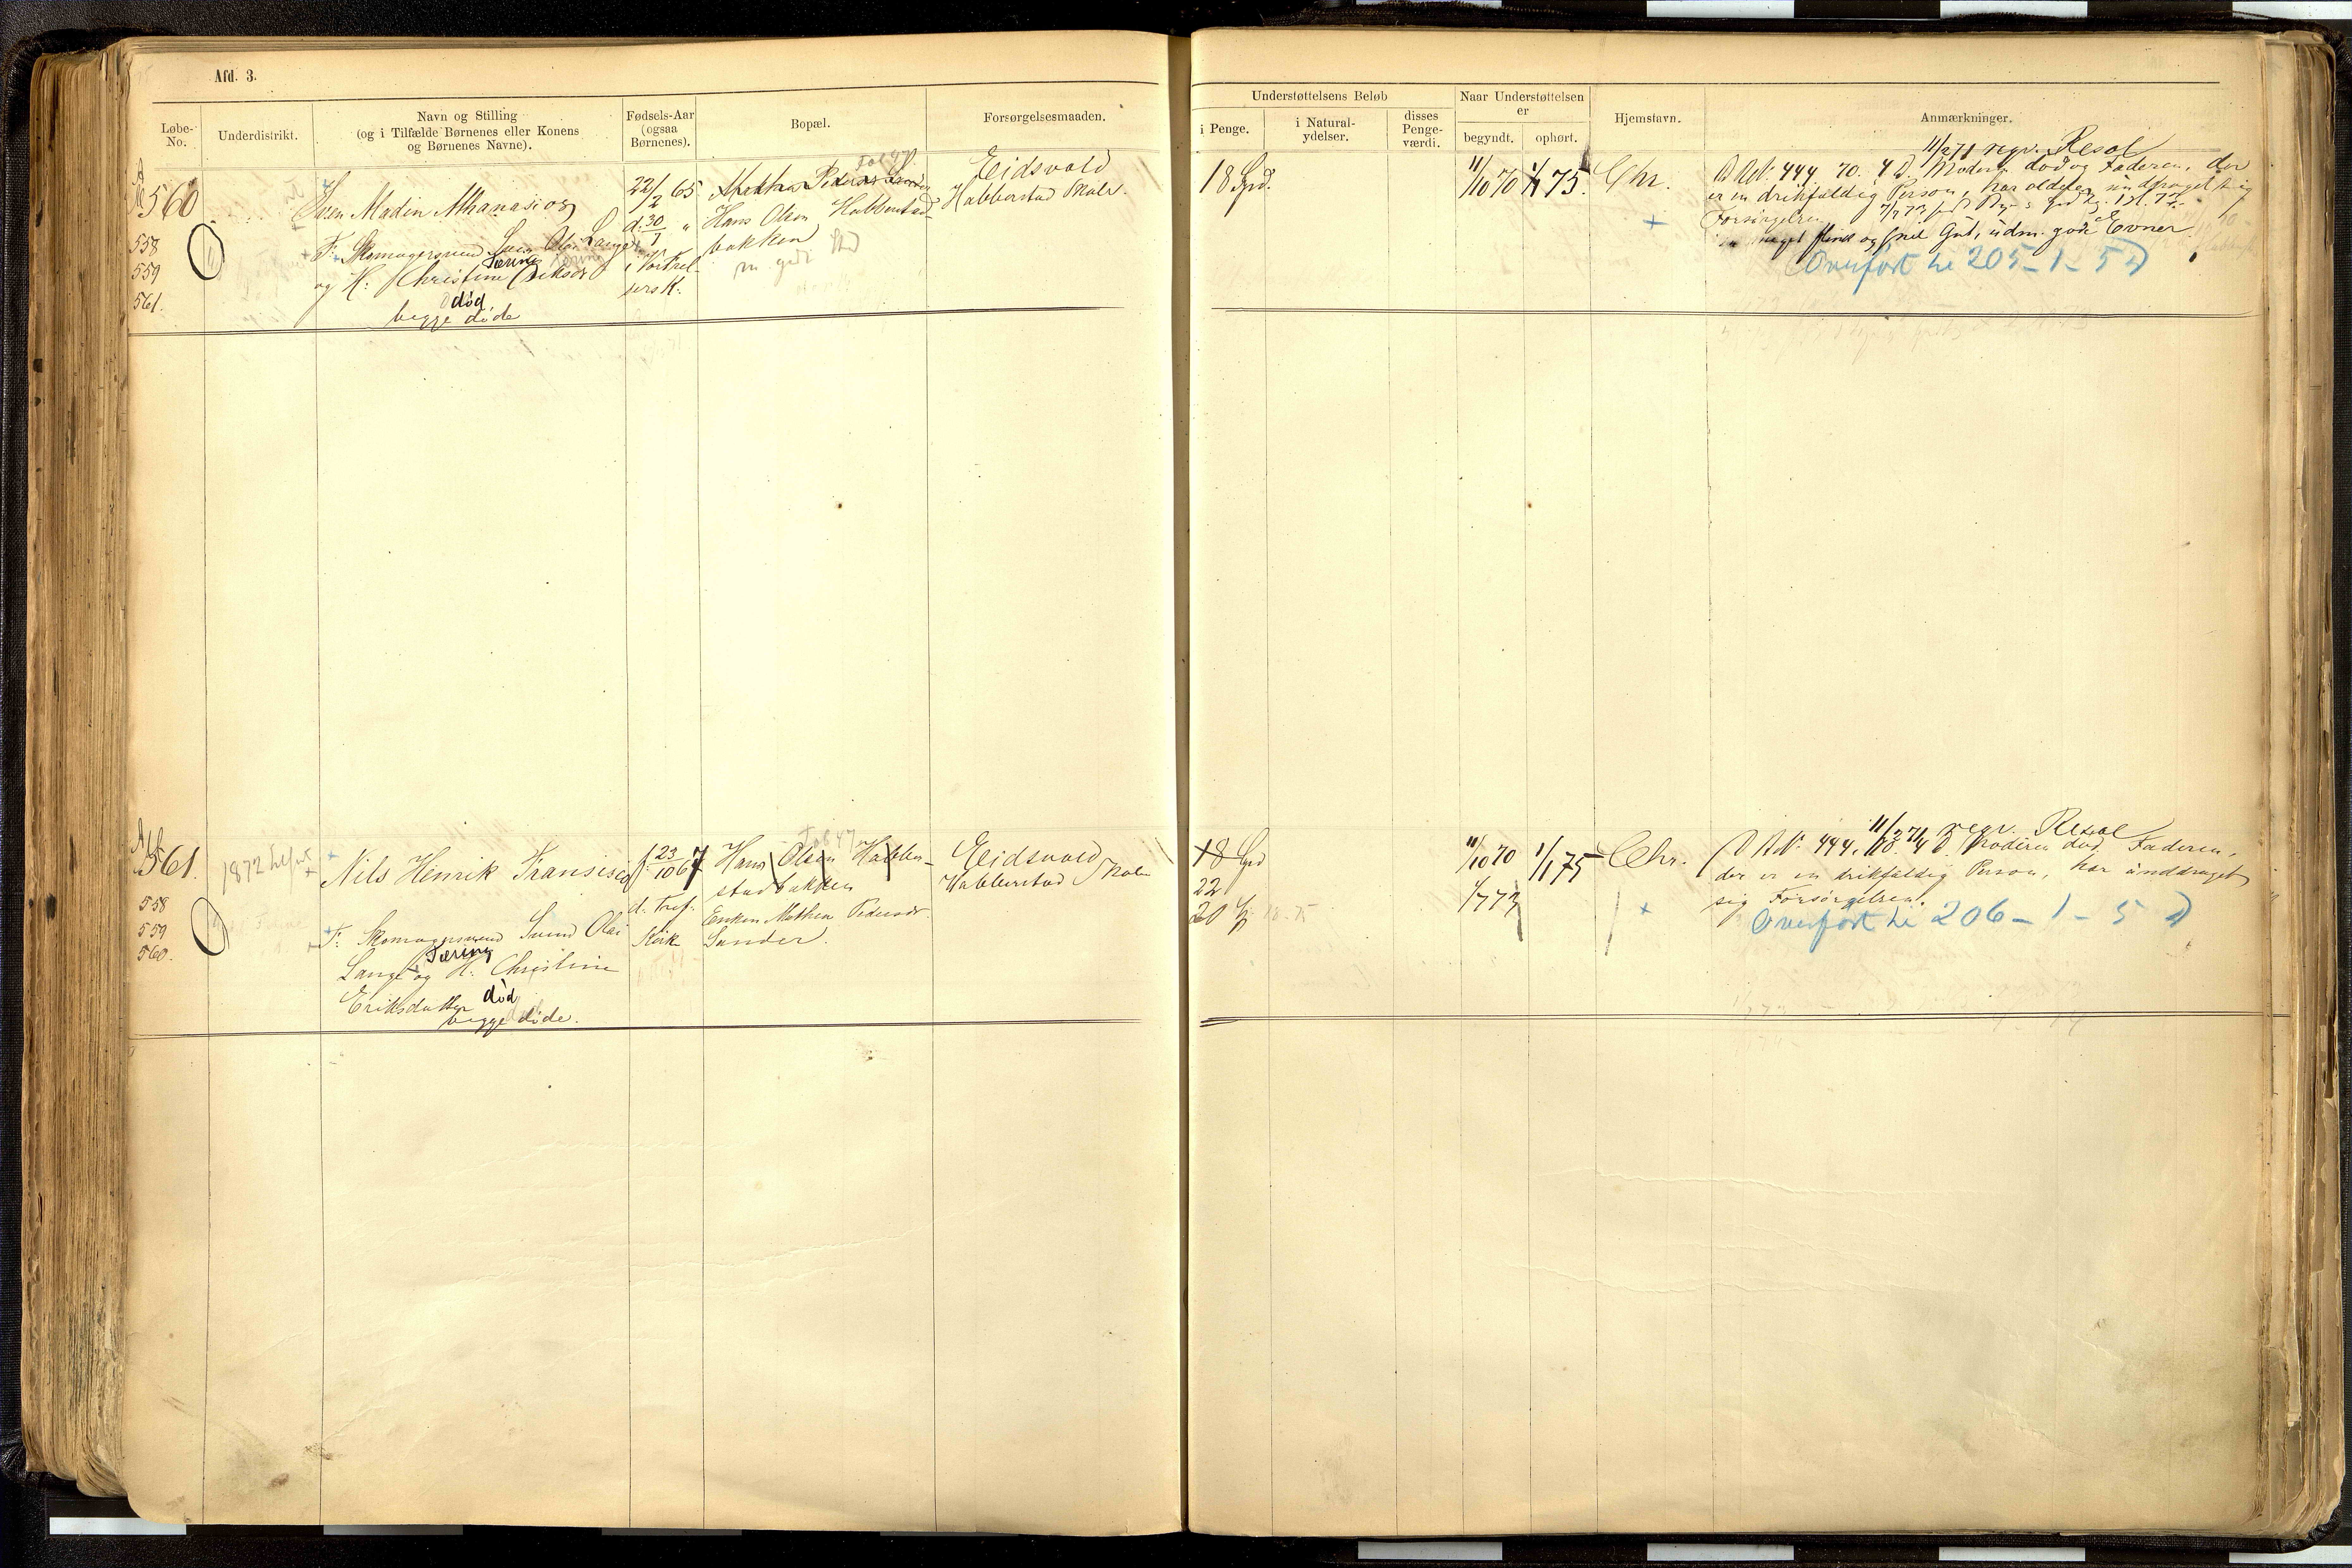 Afd. 3.
Løbe-No.
Underdistrikt.
Navn og Stilling
(og i Tilfælde Børnenes eller Konens
og Børnenes Navne).
Fødsels-Aar
(ogsaa
Børnenes).
Bopæl.
Forsørgelsesmaaden.
Understøttelsens Beløb
i Penge.
i Natural-
ydelser.
disses
Penge-
værdi.
Naar Understøttelsen
er
begyndt.
ophørt.
Hjemstavn.
Anmærkninger.
560
558
559
561.
Madin Athanasios
F: Skomagersvend Lange
Tæring
og H: Christine
død
begge døde
22/2 65
d: 30/7 "
i Vor Frel-
sers K.
Hans Olsen Habberstad-
bakken
Eidsvold
Habberstad Skole.
18 Spd.
11/10 70
1/1 75.
Chr.
11/2 71 regr. Resol
444 70. 4 D. Moderen død og Faderen, der
er en drikfældig Person, har unddraget sig
Forsørgelsen
meget flink og snil Gut, udm. gode Evner
Overført te 205-1-5 D
561.
558
559
560.
1872
Nils Henrik Fransisco
F: Skomagersvend Svend Olai
Tæring
Lange og H: Christine
Eriksdatter død
begge døde.
f: 23/10 67
d: Tref.
Kirk
Hans Olsen Habber-
stadbakken
Enken Mathea Pedersdr.
Sander.
Eidsvold
Habberstad Skole
18 Spd
22
20
11/10 70
1/7 73
1/1 75
Chr.
11/2 71 regr. Resol
444. 70. 4 D Moderen død Faderen,
der er en drikfældig Person, har unddraget
sig Forsørgelsen.
Overført te 206-1-5 D